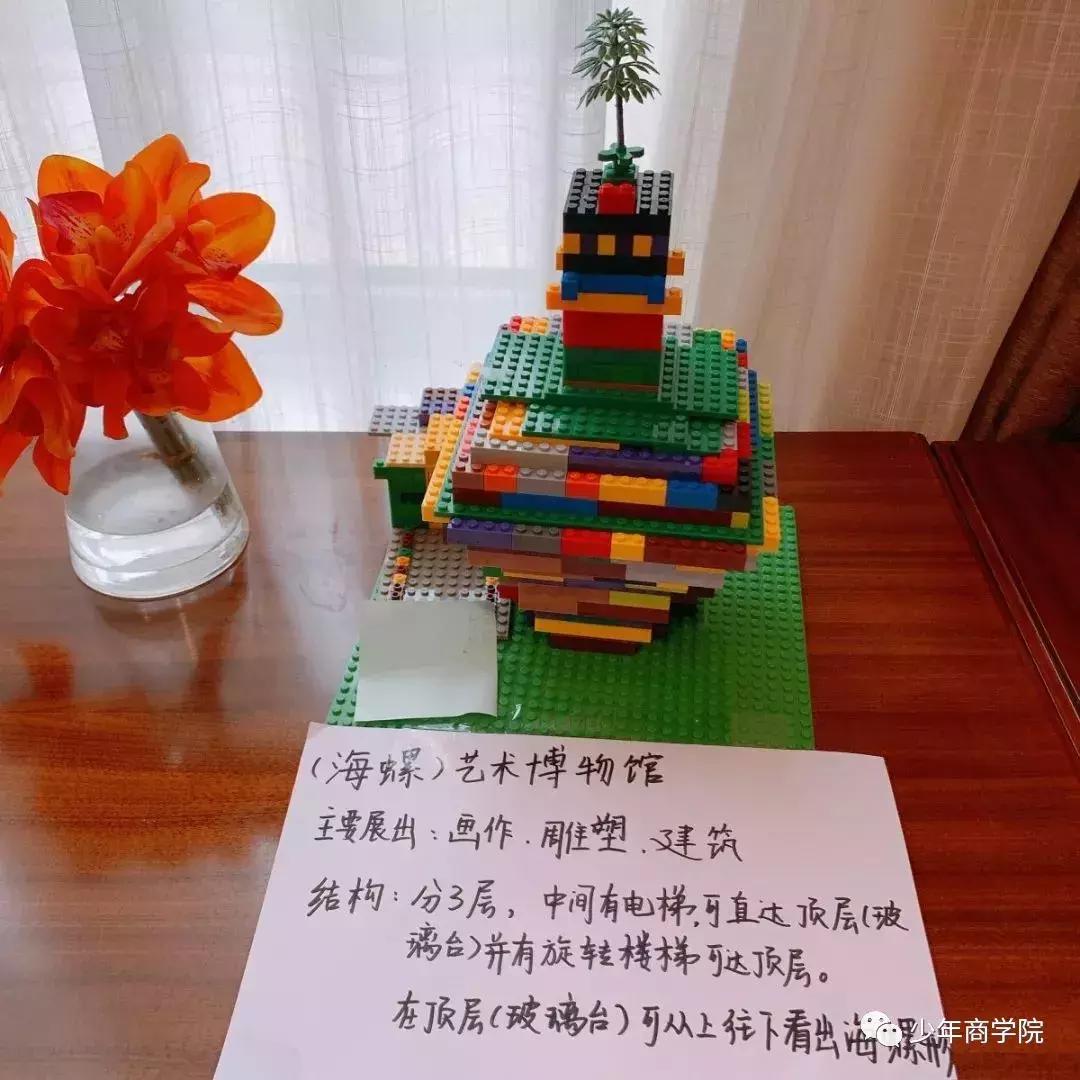 (海螺)艺术博物馆
主要展出:画作.雕塑.建筑
结构:分3层,中间有电梯,可直达顶层(玻
璃台)并有旋转楼梯可达顶层。
在顶层(玻璃台)可从上往下看出海螺形
少年商学院